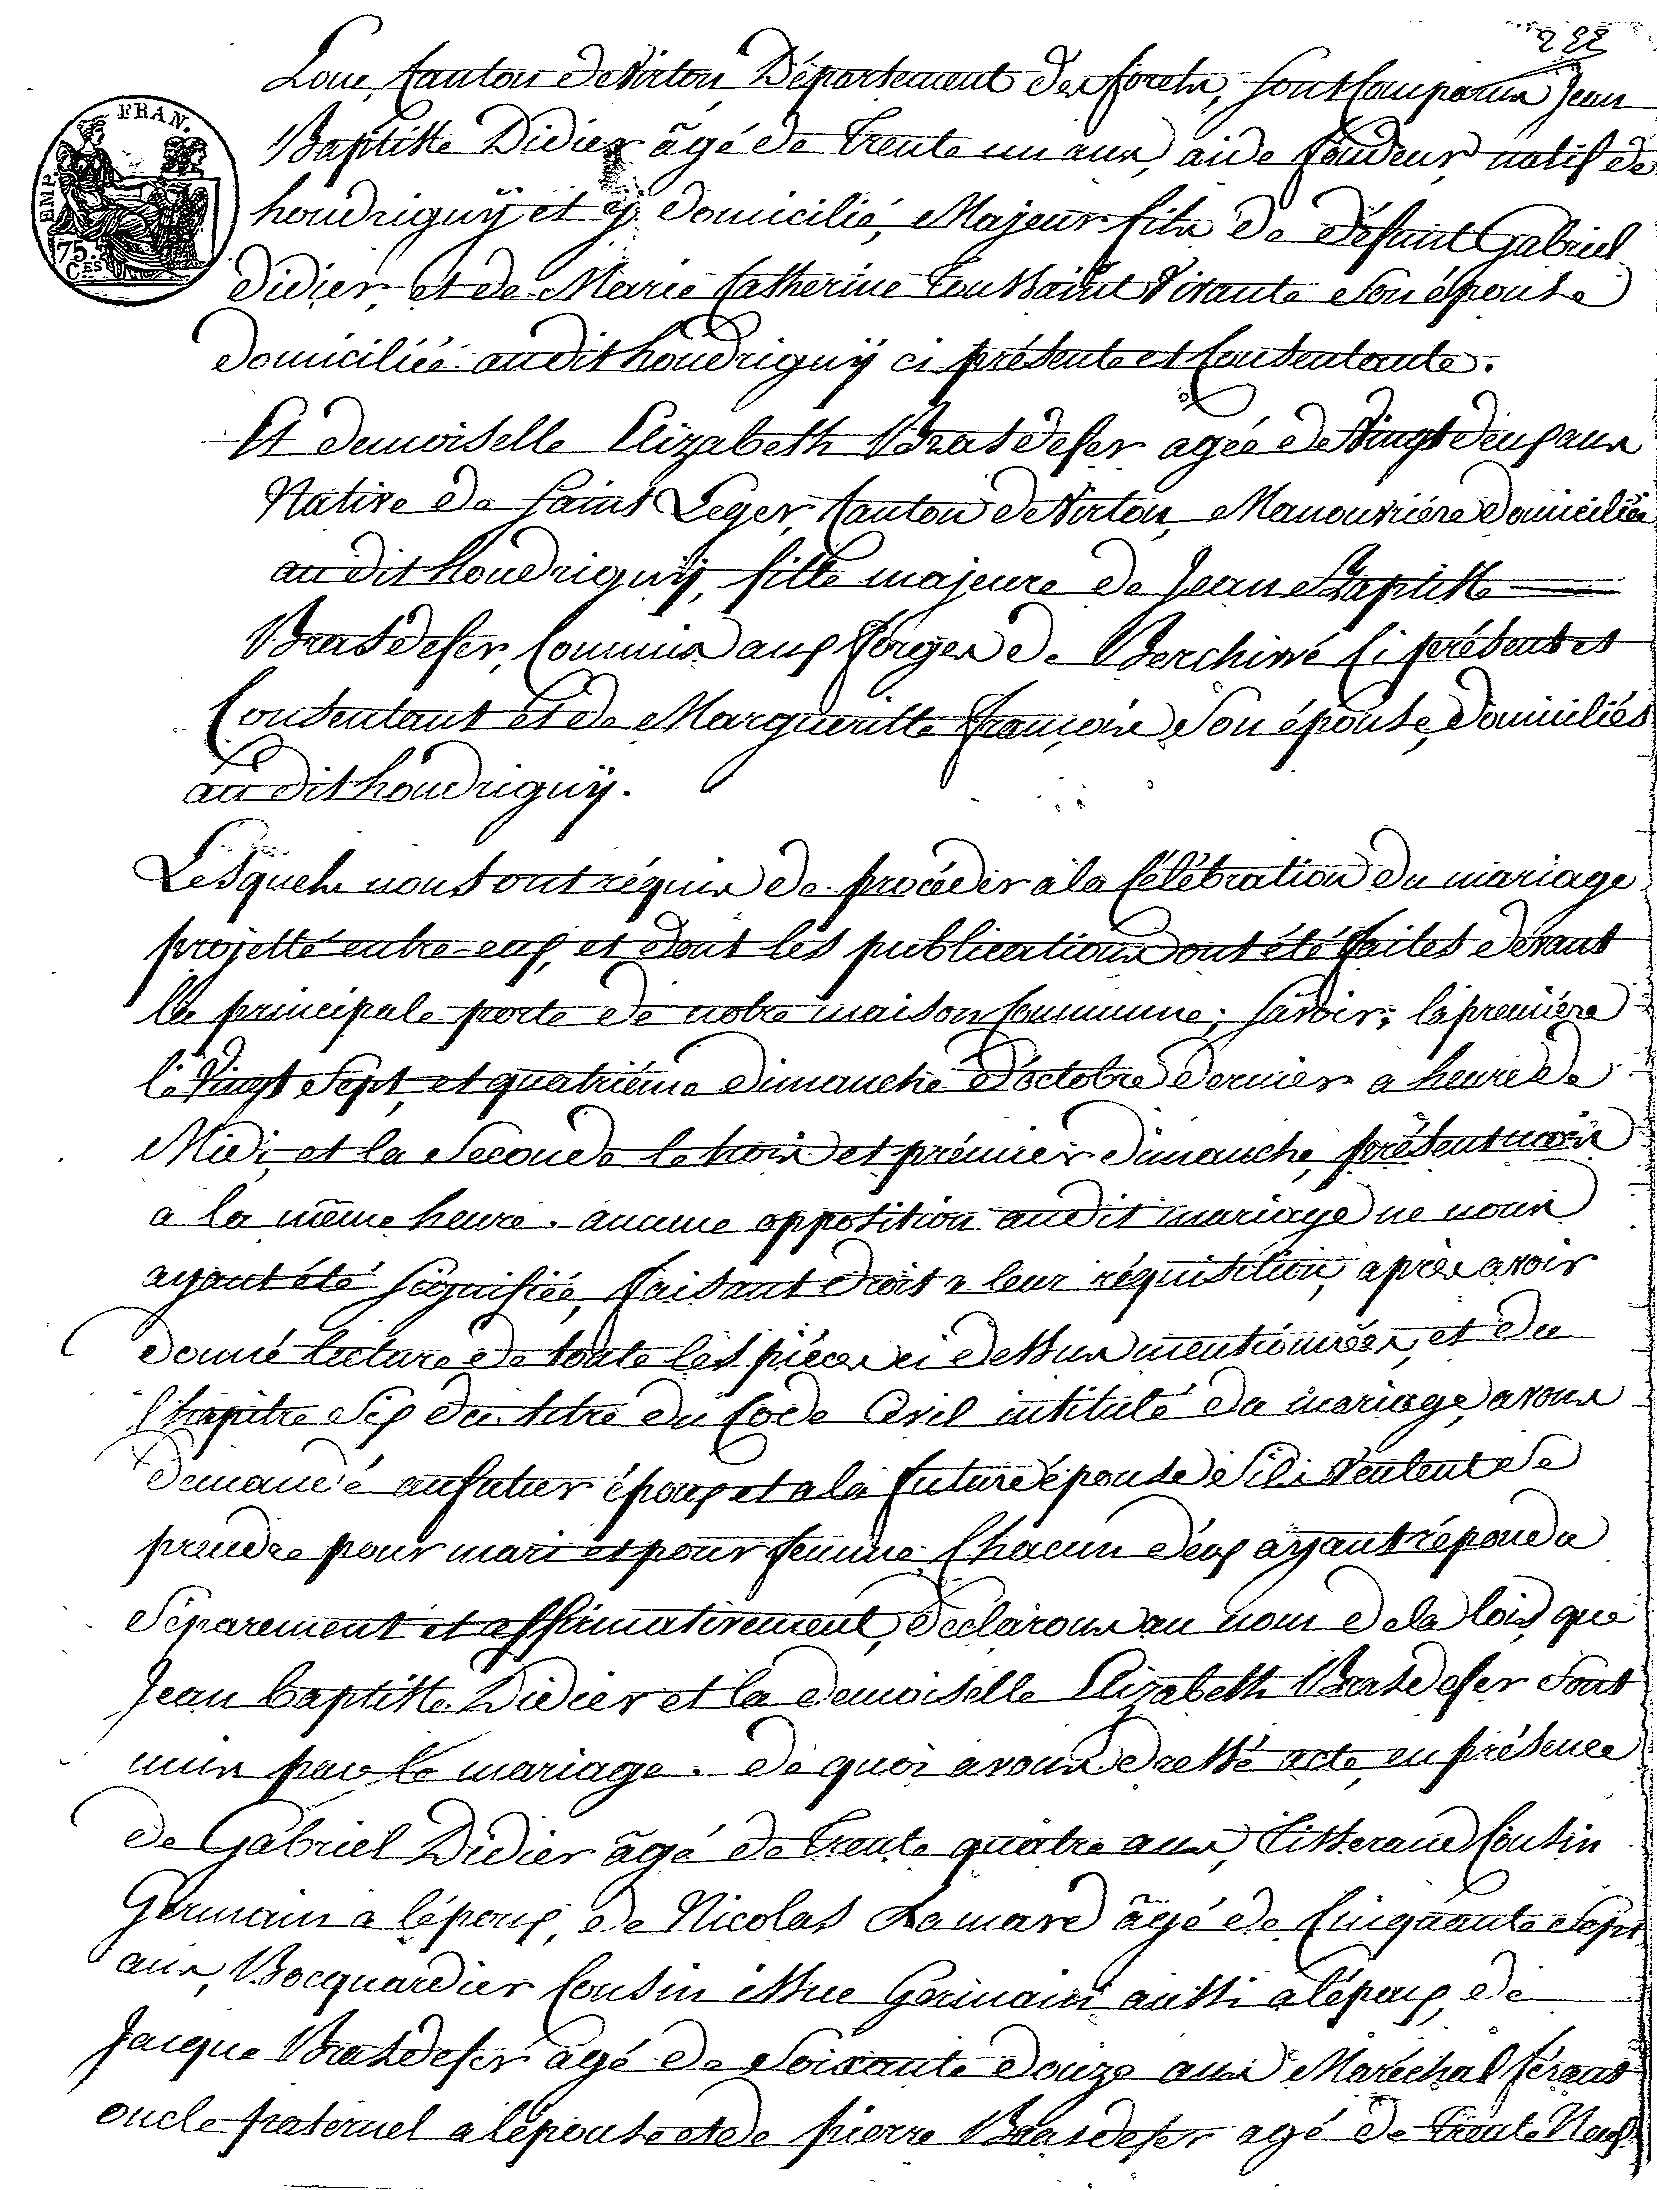 222
Loue, Canton de Virton, Département des forets, sont Comparus Jean
FRAN.
EMP.
75.
CES
Baptiste Didier âgé de trente un ans, aide fondeur, natif de
houdriguÿ et ÿ domicilié, Majeur fils de défunt Gabriel
didier, et de Marie Catherine toussaint Vivante son épouse
domiciliée audit houdriguÿ ci présente et Consentante.
Et demoiselle Elizabeth Brasdefer agée de Vingt deux ans
Native de Saint Leger, Canton de Virton, Manouvriére domiciliée
au dit houdriguÿ, fille majeure de Jean Baptiste
Brasdefer, Commis aux forges de Berchiwé Ci présent et
Consentant et de Margueritte françois Son épouse, domiciliés
au dit houdriguÿ.
Lesquels nous ont réquis de procéder à la Célébration du mariage
projetté entre eux, et dont les publications ont été faites devant
la principale porte de notre maison Commune; savoir; la premiére
le Vingt Sept, et quatriéme dimanche d'octobre dernier a heure de
Midi, et la Seconde le trois et prémier dimanche, présent mois
a la même heure. aucune oppotition audit mariage ne nous
ayant été signifiée, faisant droit a leur réquisition, après avoir
donné lecture de toute les piéces ci dessus mentionnées, et du
Chapitre Six du titre du Code Civil intitulé du mariage, avons
demandé au futur époux et a la future épouse S'ils Veulent Se
prendre pour mari et pour femme Chacun d'eux ayant répondu
Séparement et affirmativement, déclarons au nom de la loi, que
Jean baptiste Didier et la demoiselle Elizabeth Brasdefer Sont
unis par le mariage. de quoi avons dressé acte, en présence
de Gabriel Didier âgé de trente quatre ans, tisserand Cousin
Germain a l'époux, de Nicolas Lamard âgé de Cinquante Sept
ans, Bocquardier Cousin issue Germain aussi a l'époux, de
Jacque Brasdefer agé de Soixante douze ans Maréchal férant
oncle paternel a l'épouse et de pierre Brasdefer agé de trente Neuf